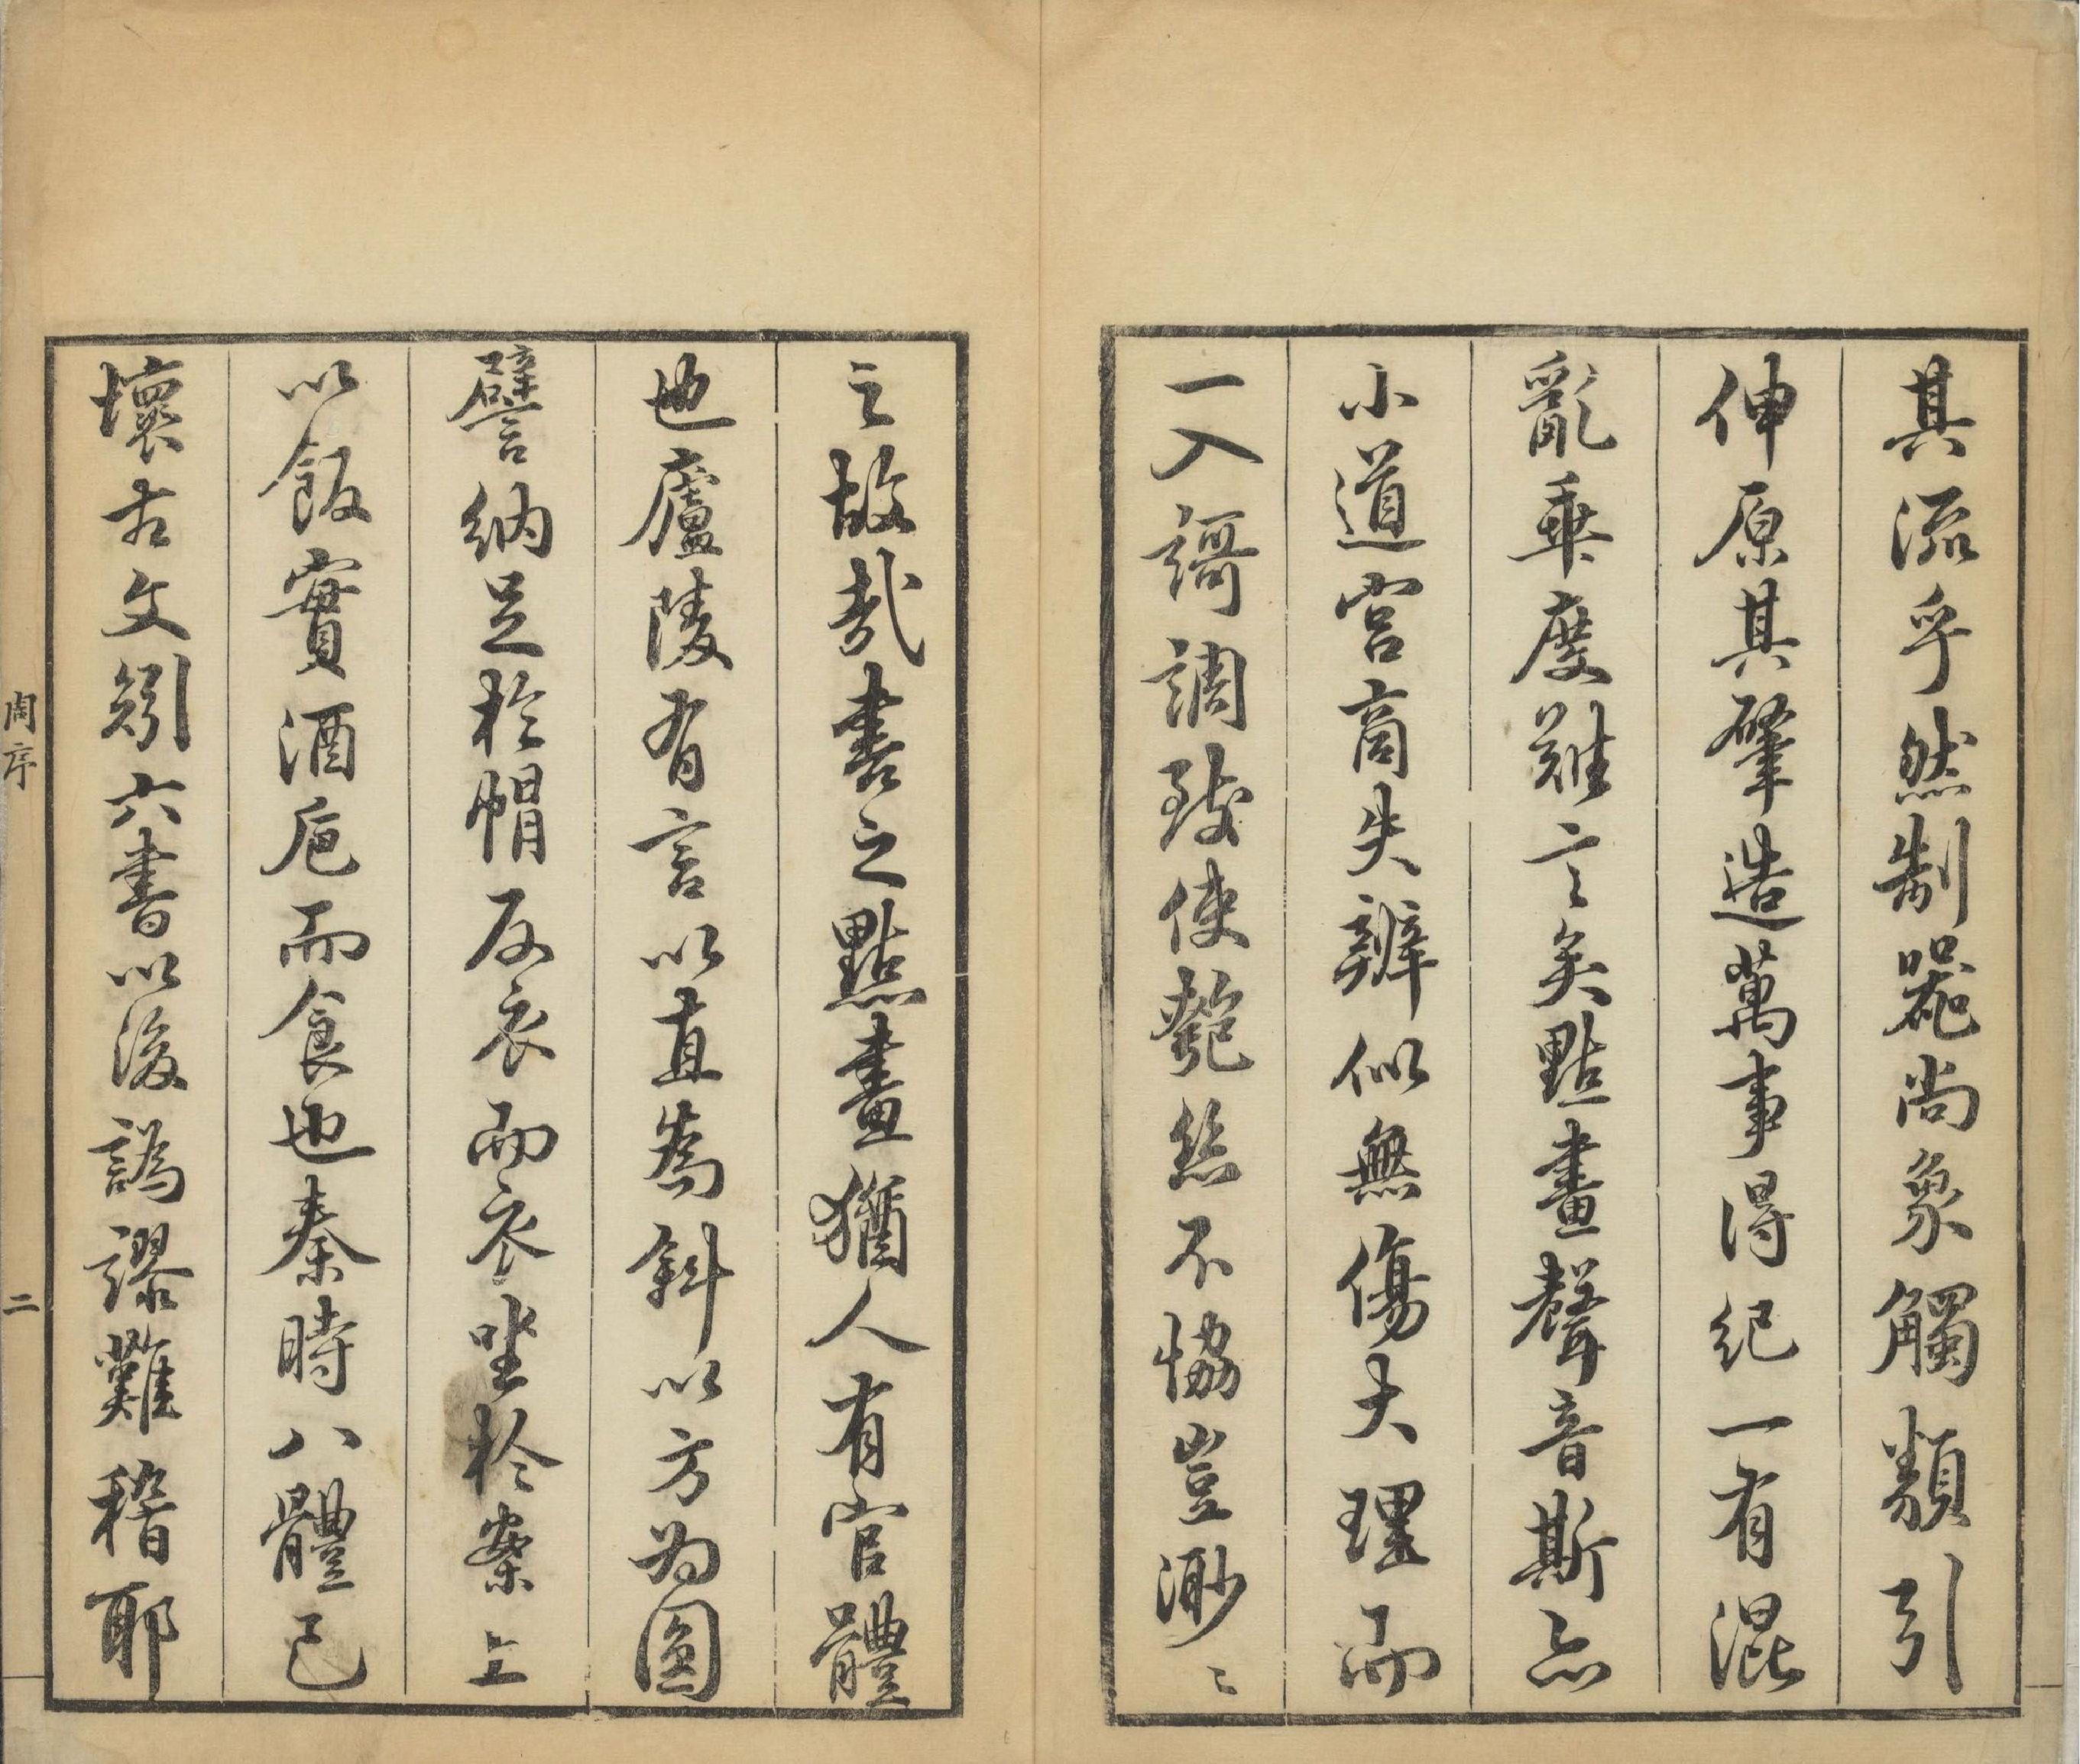 其流乎然制器尚象觸類引
伸原其肇造萬事得紀一有混
亂乖度難言矣點畫聲音斯亦
小道宮商失辨似無傷大理而
一入謌調致使匏絲不恊豈渺〻
之故哉書之點畫猶人有官體
也廬陵有言以直爲斜以方為圓
譬納足於帽反衣而衣坐於案上
以飯實酒巵而食也秦時八體已
壞古文矧六書以後譌謬難稽耶
周序 二